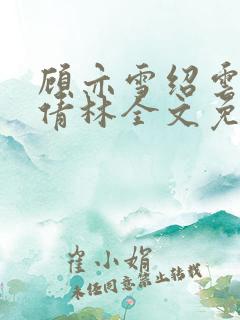 顾亦雪绍雲
倩林全文免
崔小娟
未经同意禁止转载